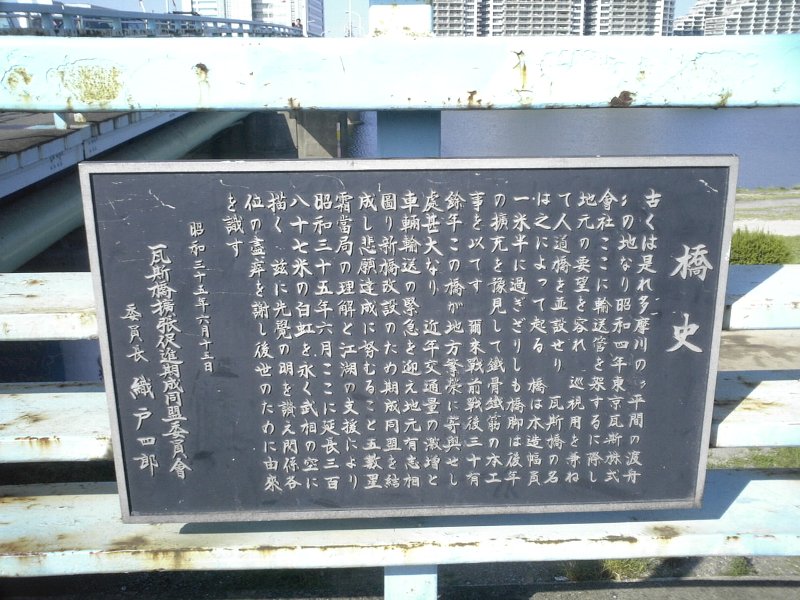 橋史
古くは是れ多摩川の平間の渡舟
の地なり昭和四年東京瓦斯株式
會社ここに輸送管を架するに際し
地元の要望を容れ 巡視用を兼ね
て人道橋を並設せり 瓦斯橋の名
は之によって起る 橋は木造幅員
一米半に過ぎざりしも橋脚は後年
の擴充を豫見して鐵骨鐵筋の本工
事を以てす 爾来戦前戦後三十有
餘年この橋が地方繁栄に寄與せし
處甚大なり 近年交通量の激増と
車輛輸送の緊急を迎え地元有志相
圖り新橋改設のため期成同盟を結
成し悲願達成に努むること五載星
霜當局の理解と江湖の支援により
昭和三十五年六月ここに延長三百
八十七米の白虹を永く武相の空に
描く 茲に先覺の明を讃え関係各
位の盡瘁を謝し後世のために由來
を識す
昭和三十五年六月十五日
瓦斯橋擴張促進期成同盟委員會
委員長 織戸四郎